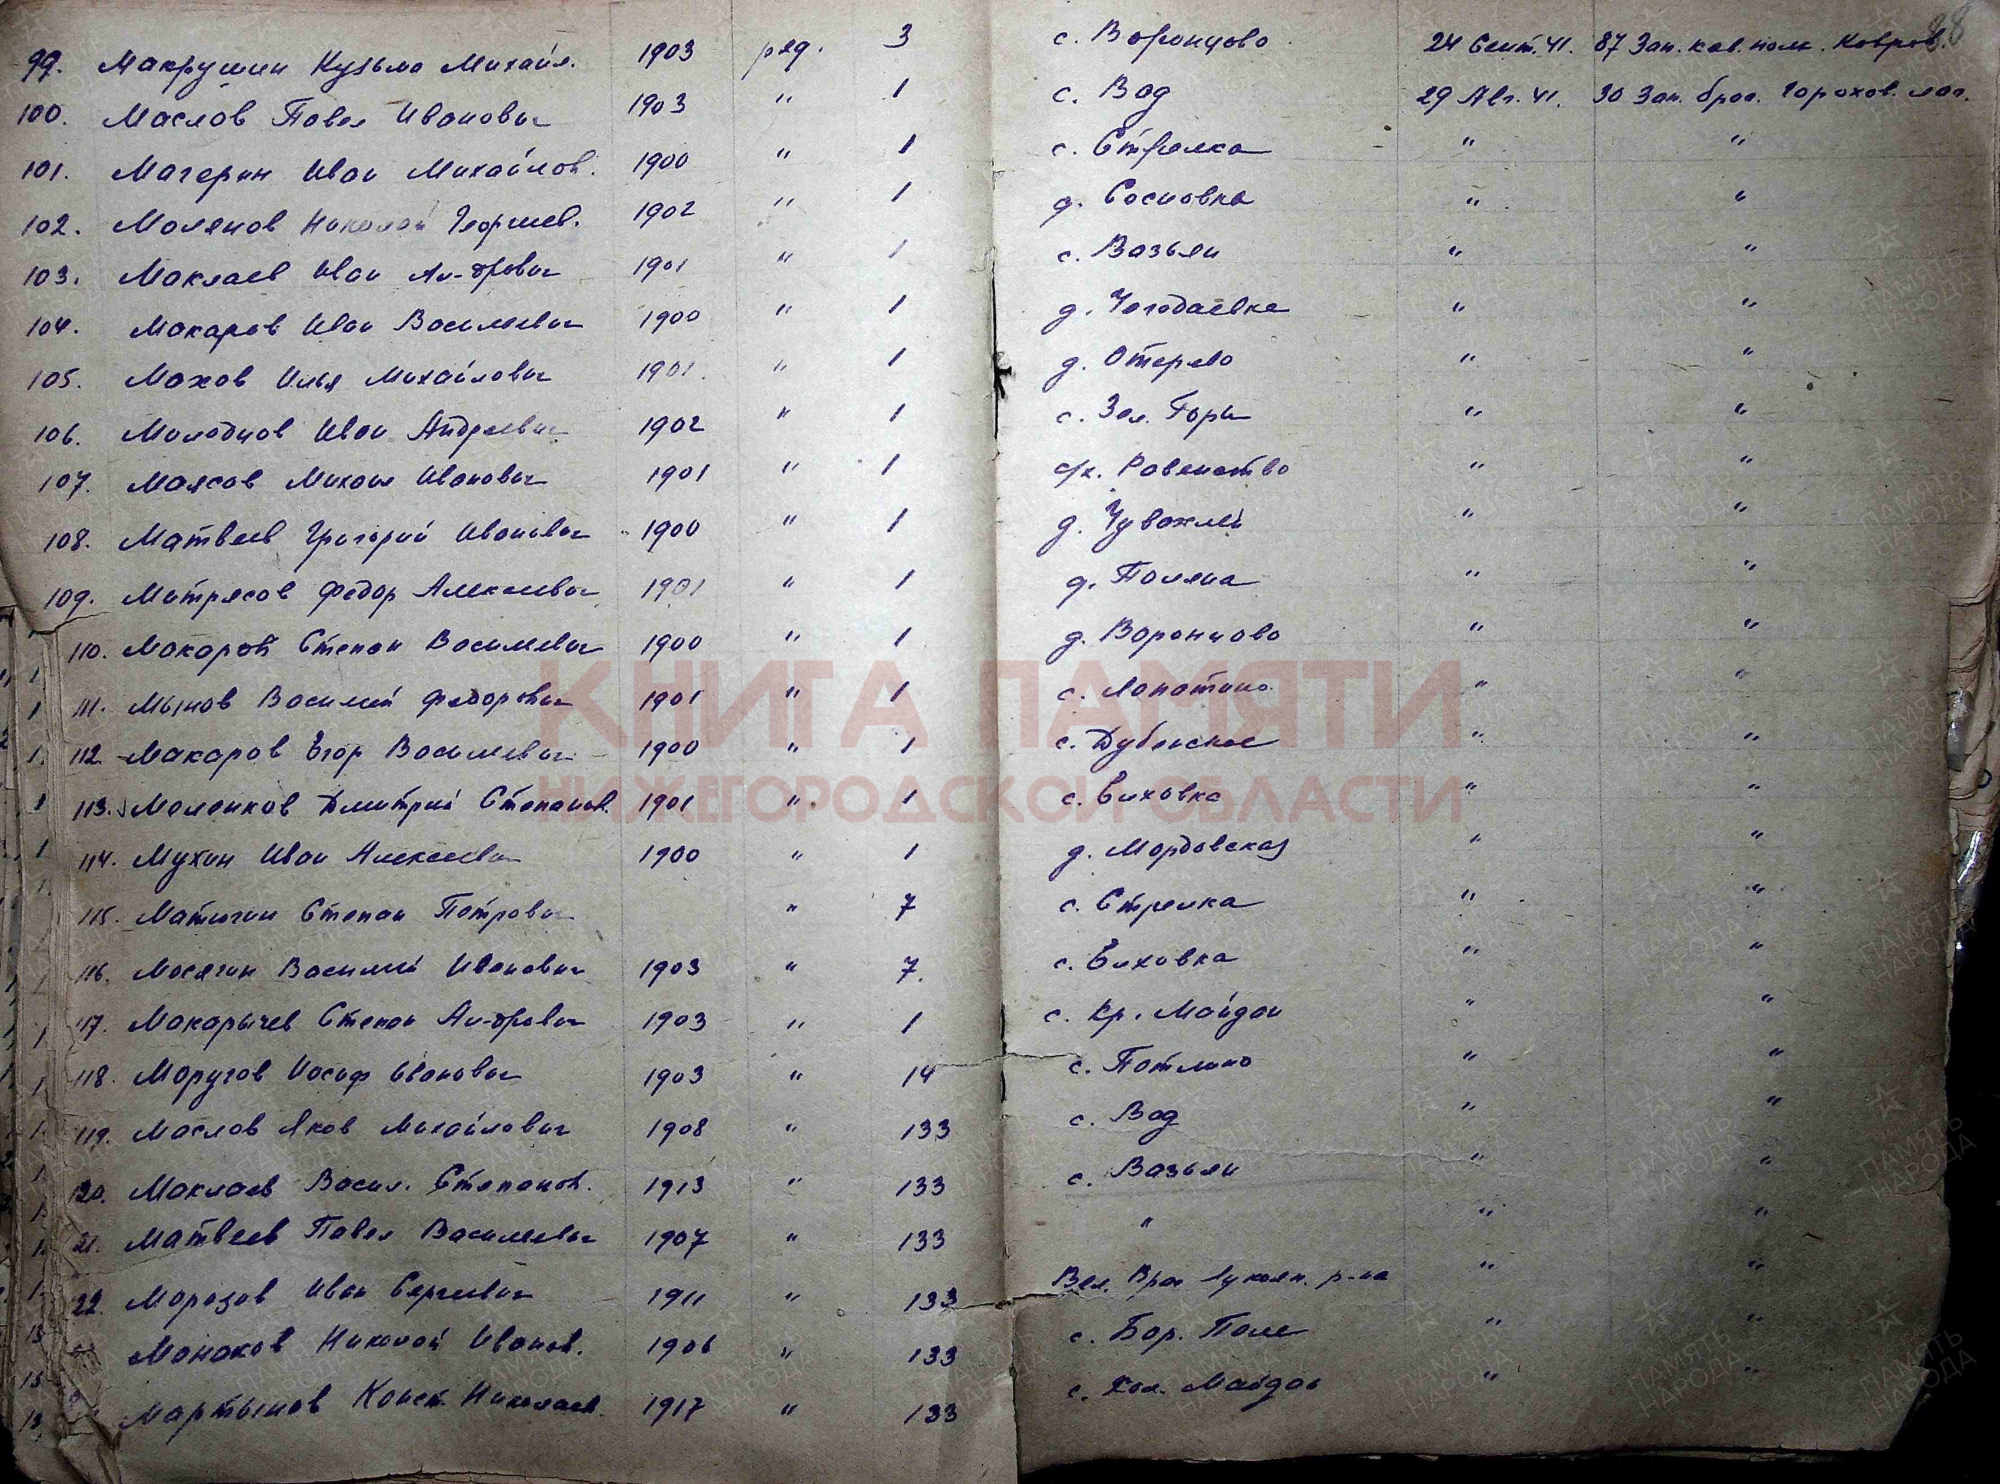 99. Макрушин Кузьма Михайл. 1903 ряд. 3 с. Воронцово 24 Сент. 41. 87 Зап. кав. полк. Ковров.
100. Маслов Павел Иванович 1903 " 1 с. Вад 29 Авг. 41. 30 Зап. бриг. Горохов. лаг.
101. Магерин Иван Михайлов. 1900 " 1 с. Стрелка " "
102. Молянов Николай Георгиев. 1902 " 1 д. Сосновка " "
103. Маклаев Иван Ал-дрович 1901 " 1 с. Вазьян " "
104. Макаров Иван Васильевич 1900 " 1 д. Чогодаевка " "
105. Мохов Илья Михайлович 1901. " 1 д. Отерево " "
106. Молодцов Иван Андреевич 1902 " 1 с. Зел. Горы " "
107. Маясов Михаил Иванович 1901 " 1 с/х. Равенство " "
108. Матвеев Григорий Иванович 1900 " 1 д. Чувахлей " "
109. Матрясов Федор Алексеевич 1901 " 1 д. Поляна " "
110. Макаров Степан Васильевич 1900 " 1 д. Воронцово " "
111. Мынов Василий Федорович 1901 " 1 с. Лопатино " "
112 Макаров Егор Васильевич 1900 " 1 с. Дубенское " "
113. Маленков Дмитрий Степанов. 1901 " 1 с. Елховка " "
114. Мухин Иван Алексеевич 1900 " 1 д. Мордовская " "
115. Матюгин Степан Петрович " 7 с. Стрелка " "
116. Мосягин Василий Иванович 1903 " 7. с. Елховка " "
117. Макарычев Степан Ал-дрович 1903 " 1 с. Кр. Майдан " "
118. Моругов Иосиф Иванович 1903 " 14 с. Потлино " "
119. Маслов Яков Михайлович 1908 " 133 с. Вад " "
120. Маклаев Васил. Степанов. 1913 " 133 с. Вазьян " "
21. Матвеев Павел Васильевич 1907 " 133 " " "
22. Морозов Иван Сергеевич 1911 " 133 Вел. Враг Лукоян. р-на " "
Монахов Николай Иванов. 1906 " 133 с. Бор. Поле " "
Мартынов Конст. Николаев. 1917 " 133 с. Хол. Майдан " "
КНИГА ПАМЯТИ
НИЖЕГОРОДСКОЙ ОБЛАСТИ